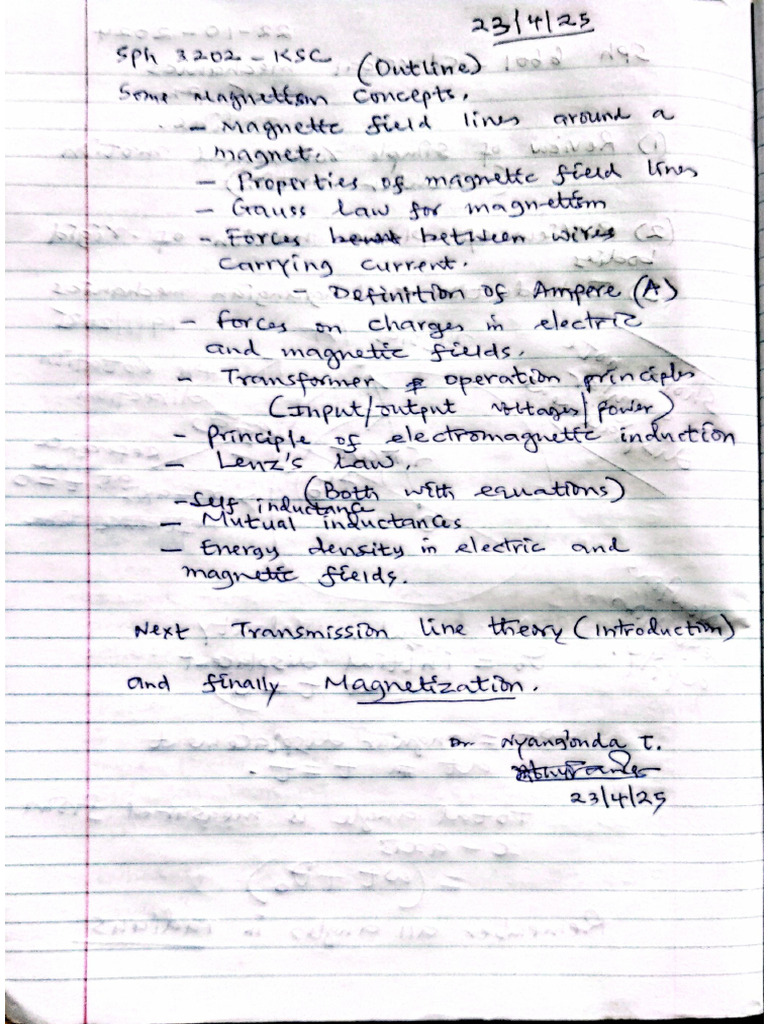 23/4/25
Sph 3202 - KSC (Outline)
Some Magnetism Concepts.
- Magnetic field lines around a
magnet.
- Properties of magnetic field lines
- Gauss law for magnetism
- Forces between wires
carrying current.
- Definition of Ampere (A)
- Forces on charges in electric
and magnetic fields.
- Transformer operation principles
(Input/output voltages/power)
- Principle of electromagnetic induction
- Lenz's Law.
(Both with equations)
- Self inductance
- Mutual inductances
- Energy density in electric and
magnetic fields.
Next Transmission line theory (introduction)
and finally Magnetization.
Dr. Nyang'onda T.
23/4/25